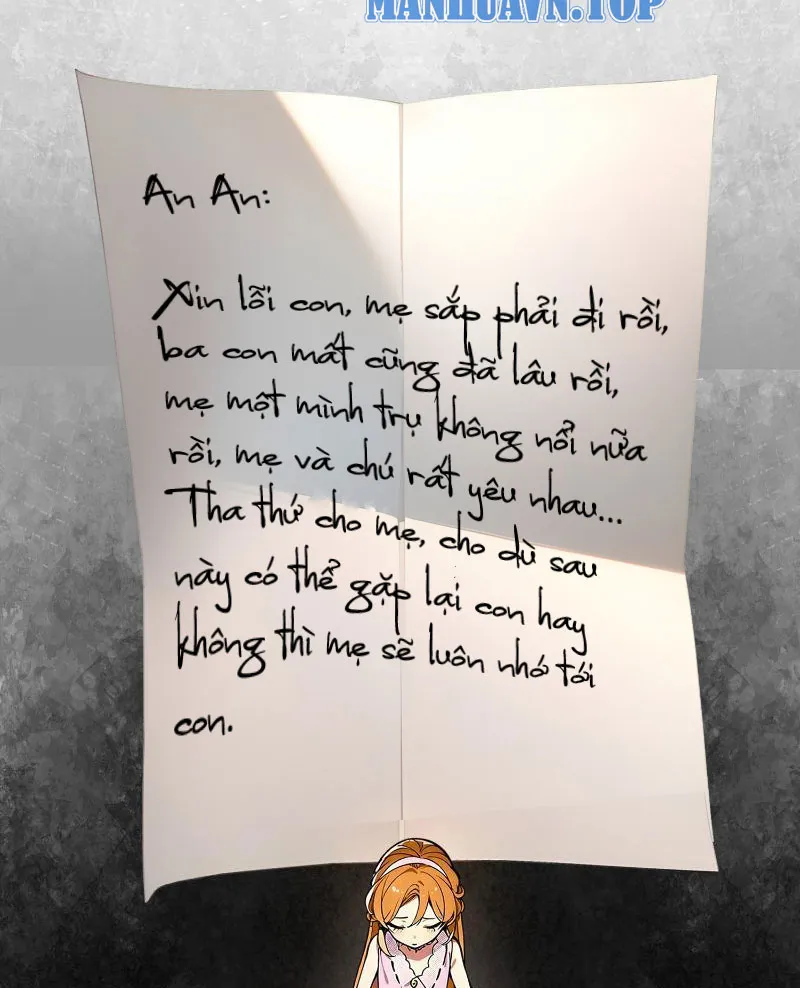 MANHUAVN.TOP
An An:
Xin lỗi con, mẹ sắp phải đi rồi,
ba con mất cũng đã lâu rồi,
mẹ một mình trụ không nổi nữa
rồi, mẹ và chú rất yêu nhau...
Tha thứ cho mẹ, cho dù sau
này có thể gặp lại con hay
không thì mẹ sẽ luôn nhớ tới
con.